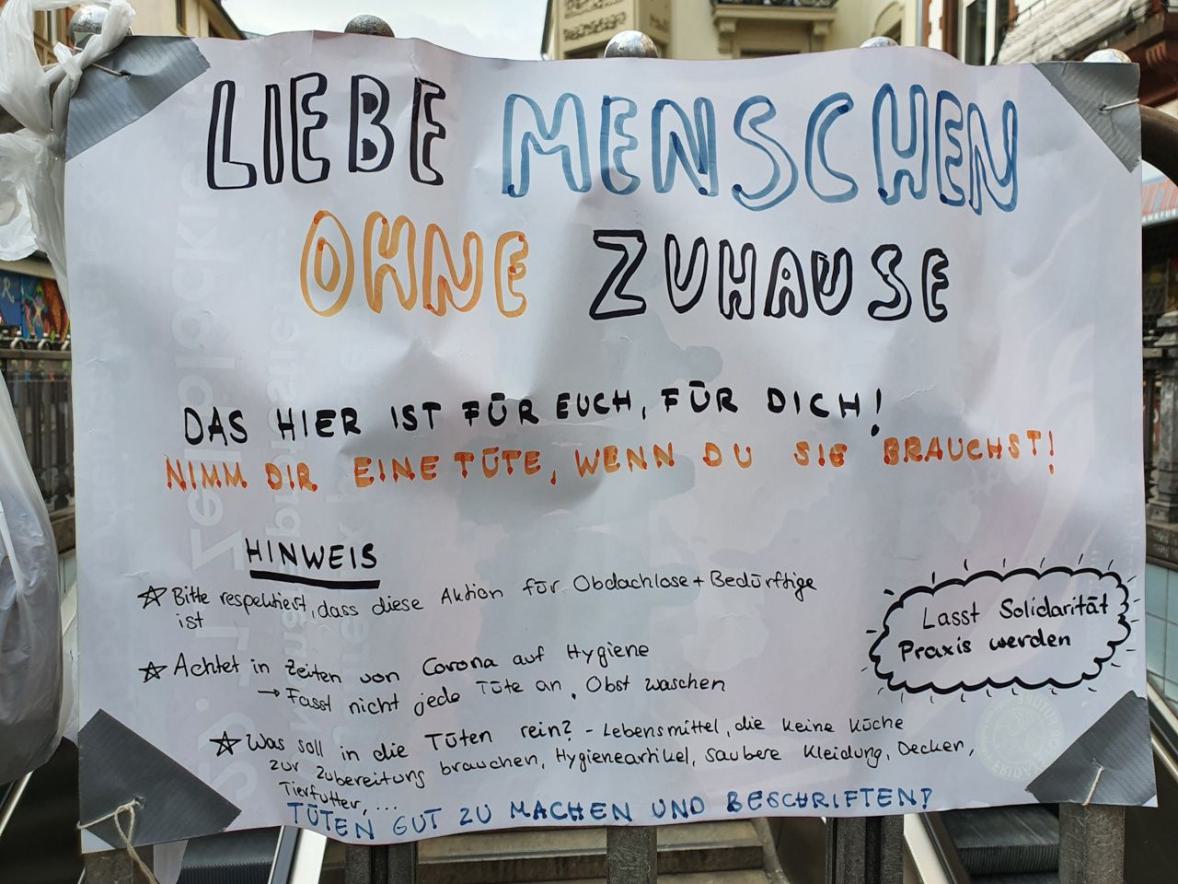 LIEBE MENSCHEN
OHNE ZUHAUSE
DAS HIER IST FÜR EUCH, FÜR DICH!
NIMM DIR EINE TÜTE, WENN DU SIE BRAUCHST!
HINWEIS
☆ Bitte respektiert, dass diese Aktion für Obdachlose + Bedürftige
ist
☆ Achtet in Zeiten von Corona auf Hygiene
→ Fasst nicht jede Tüte an, Obst waschen
Lasst Solidarität
Praxis werden
☆ Was soll in die Tüten rein? - Lebensmittel, die keine Küche
zur Zubereitung brauchen, Hygieneartikel, saubere Kleidung, Decken,
Tierfutter, ...
TÜTEN GUT ZU MACHEN UND BESCHRIFTEN!